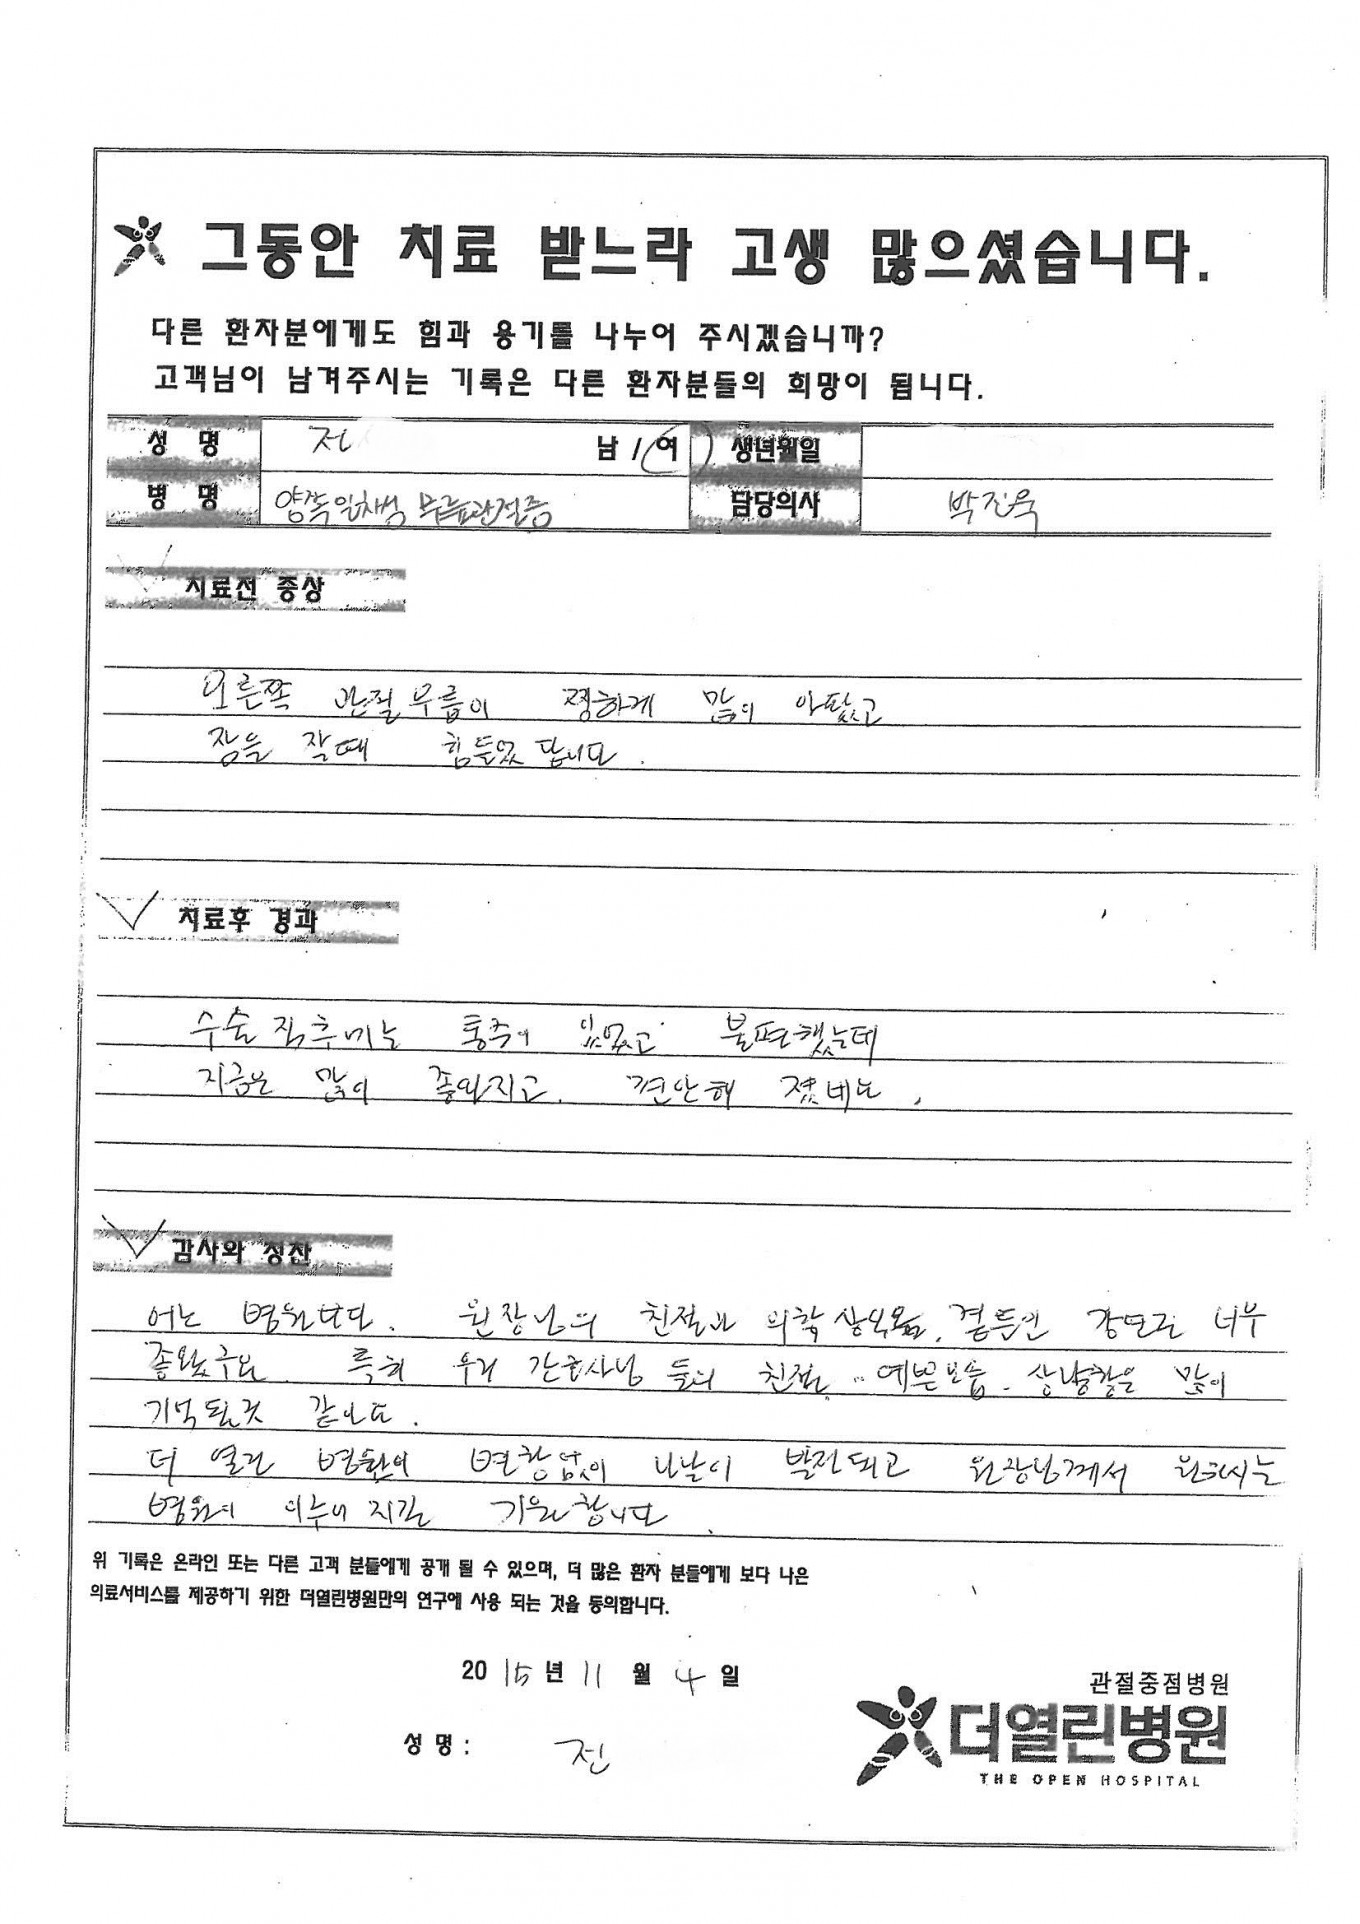 그동안 치료 받느라 고생 많으셨습니다.
다른 환자분에게도 힘과 용기를 나누어 주시겠습니까?
고객님이 남겨주시는 기록은 다른 환자분들의 희망이 됩니다.
성 명 전 남 / 여 생년월일
병 명 양쪽 일차성 무릎관절증 담당의사 박진욱
치료전 증상
오른쪽 관절 무릎이 찡하게 많이 아팠고
잠을 잘때 힘들었답니다.
치료후 경과
수술 직후에는 통증이 있었고 불편했는데
지금은 많이 좋아지고. 편안해 졌네요.
감사와 칭찬
어느 병원보다. 원장님의 친절과 의학 상식을, 곁들인 강의로 너무
좋았구요. 특히 우리 간호사님 들의 친절.. 예쁜모습. 상냥함은 많이
기억될것 같아요.
더 열린 병원의 변함없이 나날이 발전되고 원장님께서 원하시는
병원이 이루어 지길 기원합니다.
위 기록은 온라인 또는 다른 고객 분들에게 공개 될 수 있으며, 더 많은 환자 분들에게 보다 나은
의료서비스를 제공하기 위한 더열린병원만의 연구에 사용 되는 것을 동의합니다.
2015년 11 월 4 일
성 명 : 전
관절중점병원
더열린병원
THE OPEN HOSPITAL